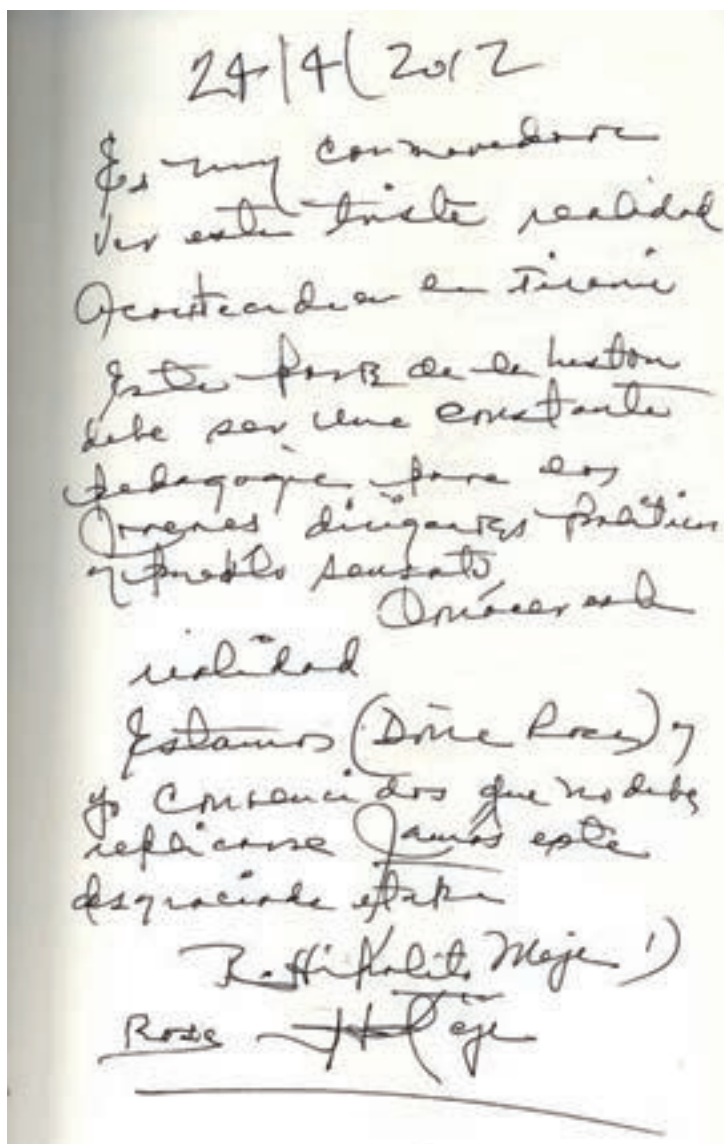 24/4/2012
Es muy conmovedora
ver esta triste realidad
Acontecida en Tirania
Esta parte de la histori
debe ser una constante
pedagogia para los
Jovenes dirigentes politicos
y pueblo sensato
Conocer esta
realidad
Estamos (Doña Rosa) y
yo convencidos que no debe
replicarse Jamás esta
desgraciada etapa
R. Hipolito Mejia D
Rosa